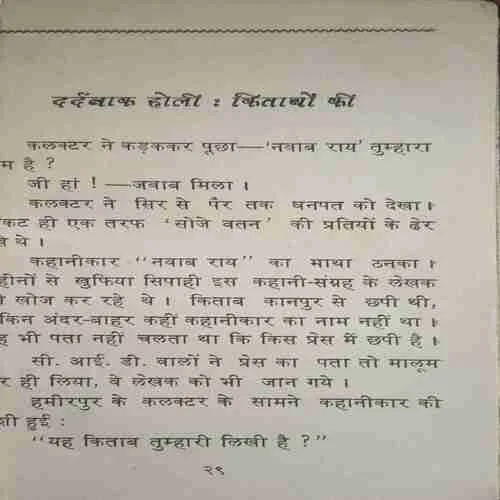 दर्दनाक होली : किताबों की
कलक्टर ने कड़ककर पूछा—'नवाब राय' तुम्हारा
म है ?
जी हां ! —जवाब मिला ।
कलक्टर ने सिर से पैर तक धनपत को देखा।
कट ही एक तरफ 'सोजे वतन' की प्रतियों के ढेर
थे ।
कहानीकार "नवाब राय" का माथा ठनका।
हीनों से खुफिया सिपाही इस कहानी-संग्रह के लेखक
खोज कर रहे थे । किताब कानपुर से छपी थी,
किन अंदर-बाहर कहीं कहानीकार का नाम नहीं था ।
ह भी पता नहीं चलता था कि किस प्रेस में छपी है ।
सी. आई. डी. वालों ने प्रेस का पता तो मालूम
र ही लिया, वे लेखक को भी जान गये ।
हमीरपुर के कलक्टर के सामने कहानीकार की
शी हुई :
"यह किताब तुम्हारी लिखी है ?"
२९